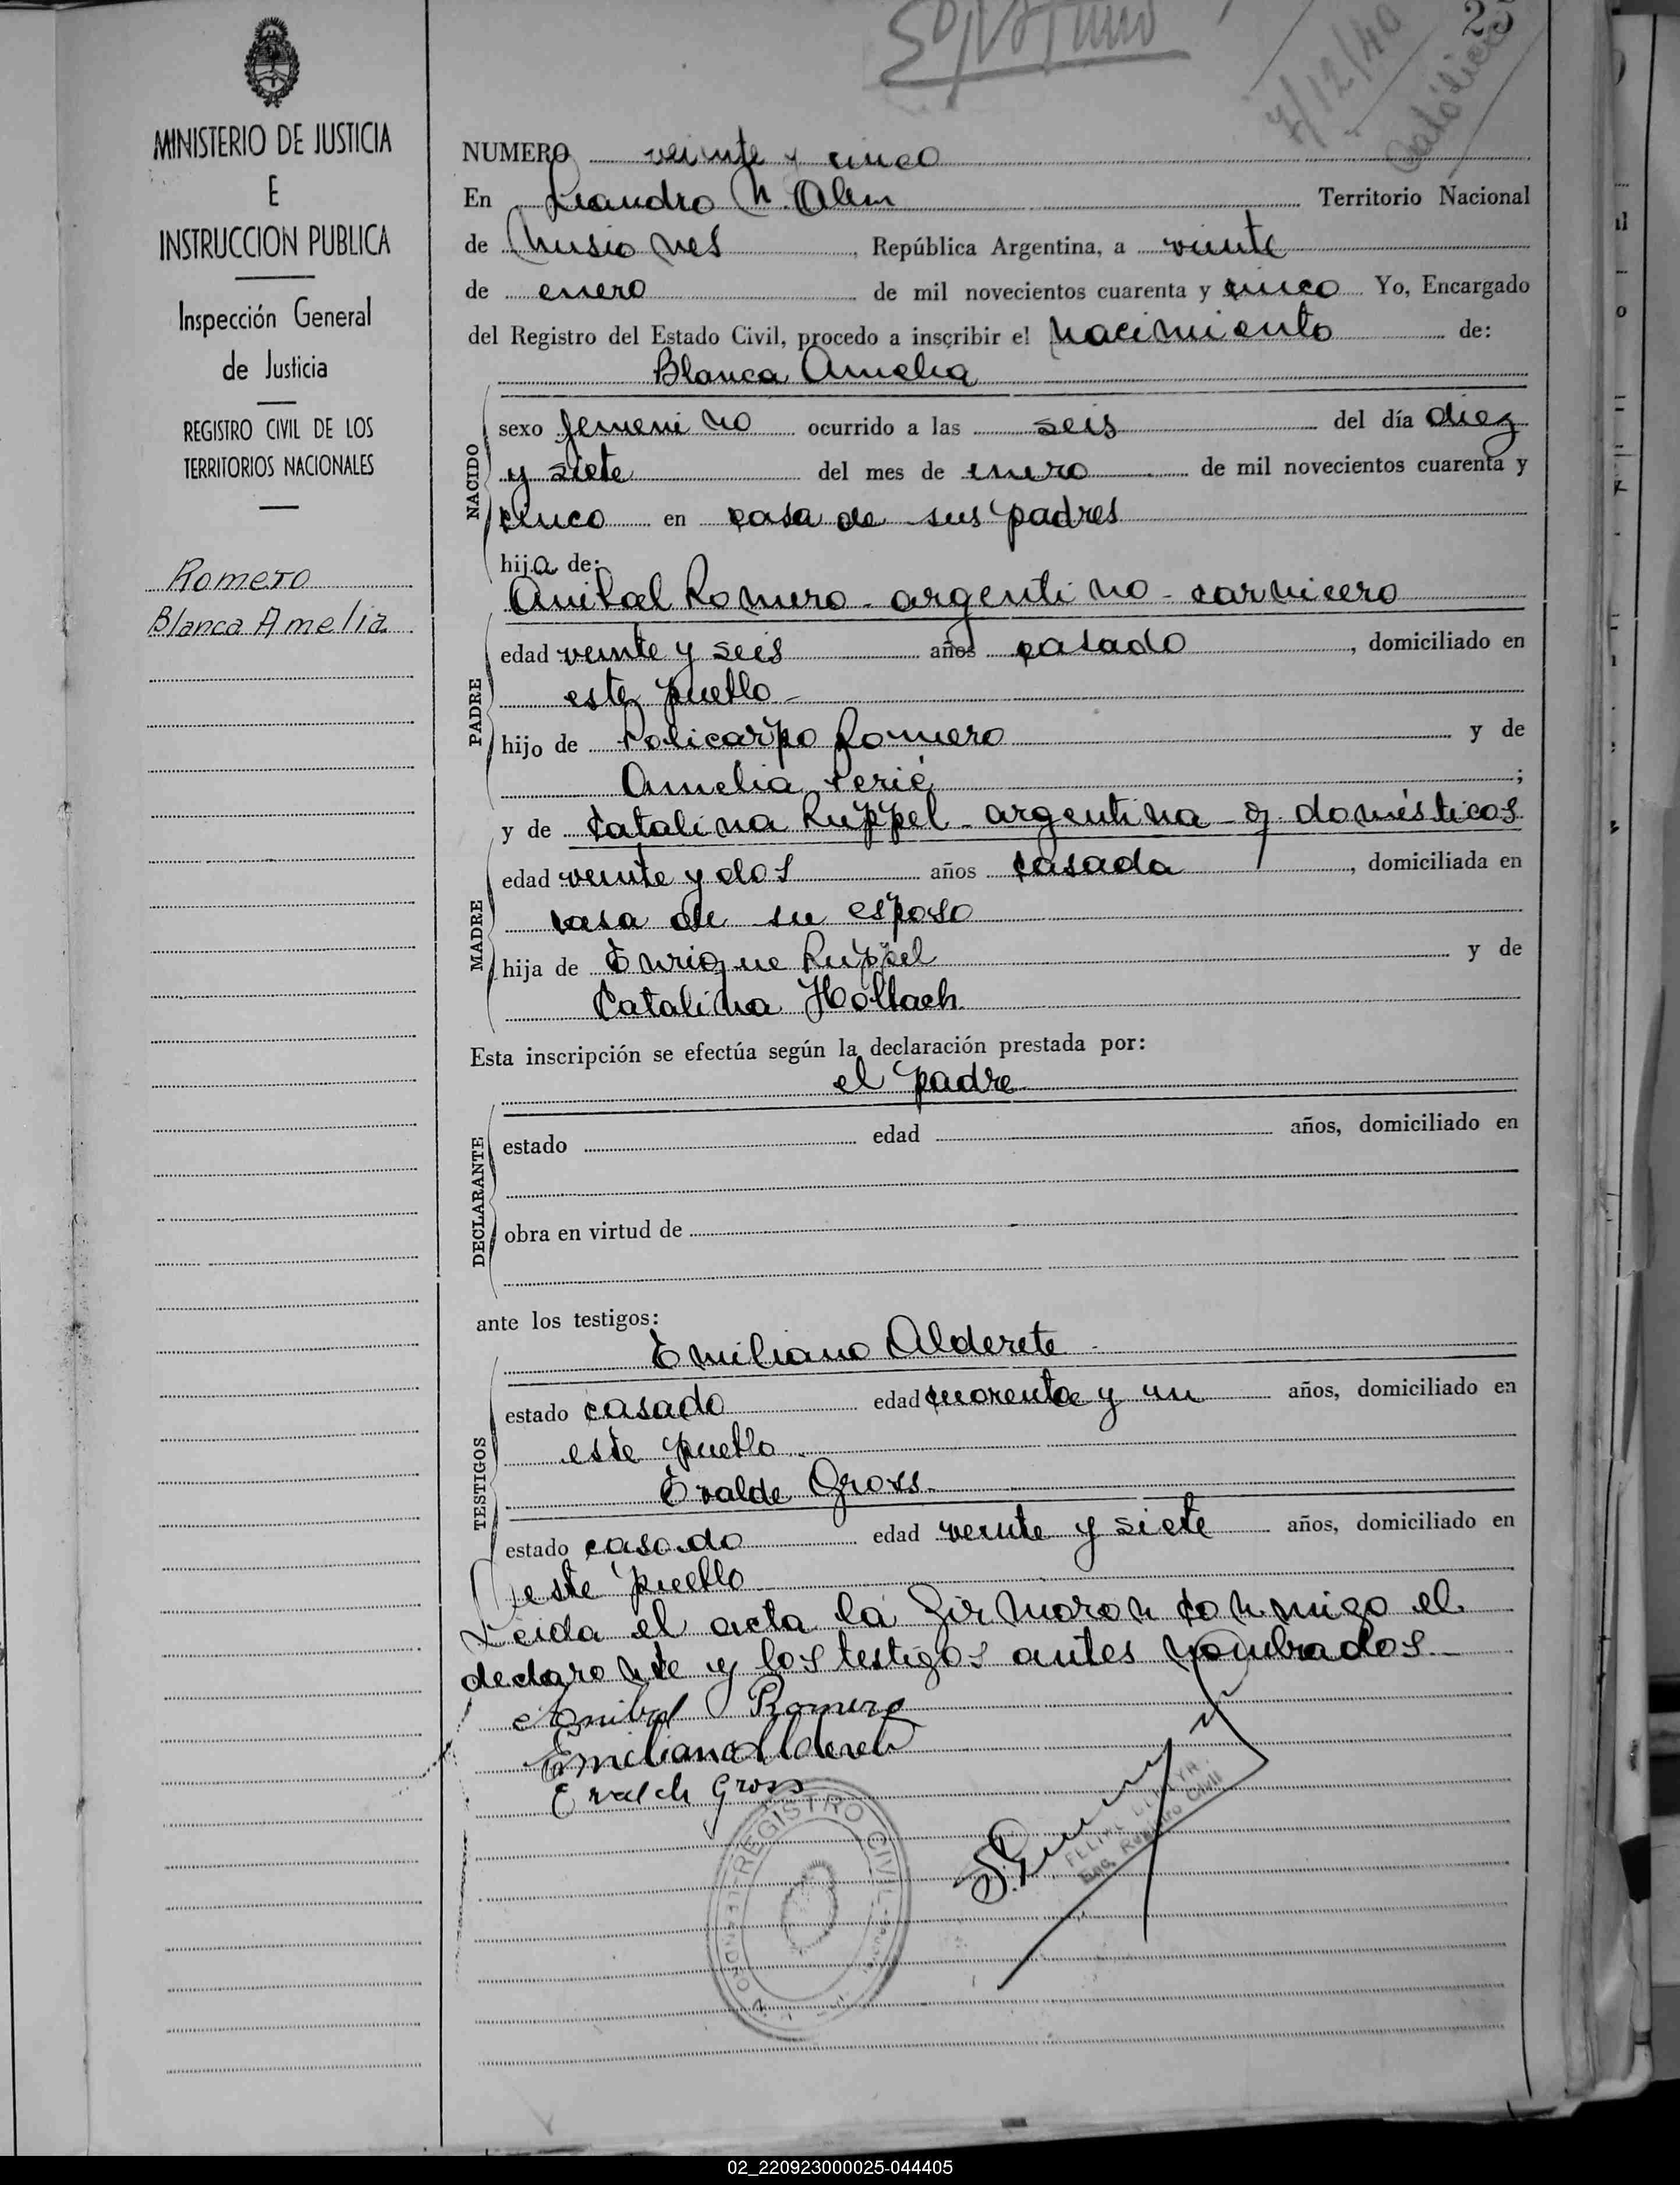 25
7/12/40
MINISTERIO DE JUSTICIA
E
INSTRUCCION PUBLICA
Inspección General
de Justicia
REGISTRO CIVIL DE LOS
TERRITORIOS NACIONALES
Romero
Blanca Amelia
NUMERO veinte y cinco
En Leandro N. Alem Territorio Nacional
de Misiones, República Argentina, a veinte
de enero de mil novecientos cuarenta y cinco Yo, Encargado
del Registro del Estado Civil, procedo a inscribir el nacimiento de:
Blanca Amelia
NACIDO
sexo femenino ocurrido a las seis del día diez
y siete del mes de enero de mil novecientos cuarenta y
cinco en casa de sus padres
hija de:
PADRE
Anibal Romero - argentino - carnicero
edad veinte y seis años casado, domiciliado en
este pueblo -
hijo de Policarpo Romero y de
Amelia Perié;
MADRE
y de Catalina Ruppel - argentina - q. domésticos
edad veinte y dos años casada, domiciliada en
casa de su esposo
hija de Enrique Ruppel y de
Catalina Hollach
Esta inscripción se efectúa según la declaración prestada por:
el padre
DECLARANTE
estado edad años, domiciliado en
obra en virtud de
ante los testigos:
TESTIGOS
Emiliano Alderete
estado casado edad cuarenta y un años, domiciliado en
este pueblo
Evalde Gross
estado casado edad veinte y siete años, domiciliado en
este pueblo
Leida el acta la firmaron conmigo el
declarante y los testigos antes nombrados.-
Anibal Romero
Emiliano Alderete
Gross
REGISTRO CIVIL
Enc. Registro Civil
02_220923000025-044405